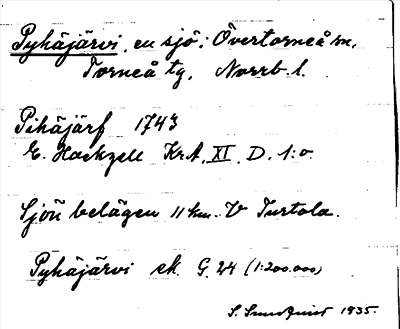 Pyhäjärvi, en sjö i Övertorneå sn,
Torneå tg, Norrb. l.
Pihäjärf 1743
E. Hackzell KrA, XI. D. 1:o.
Sjön belägen 11 km. V Turtola.
Pyhäjärvi ek. G. 24 (1:200.000)
S. Sundquist 1935.